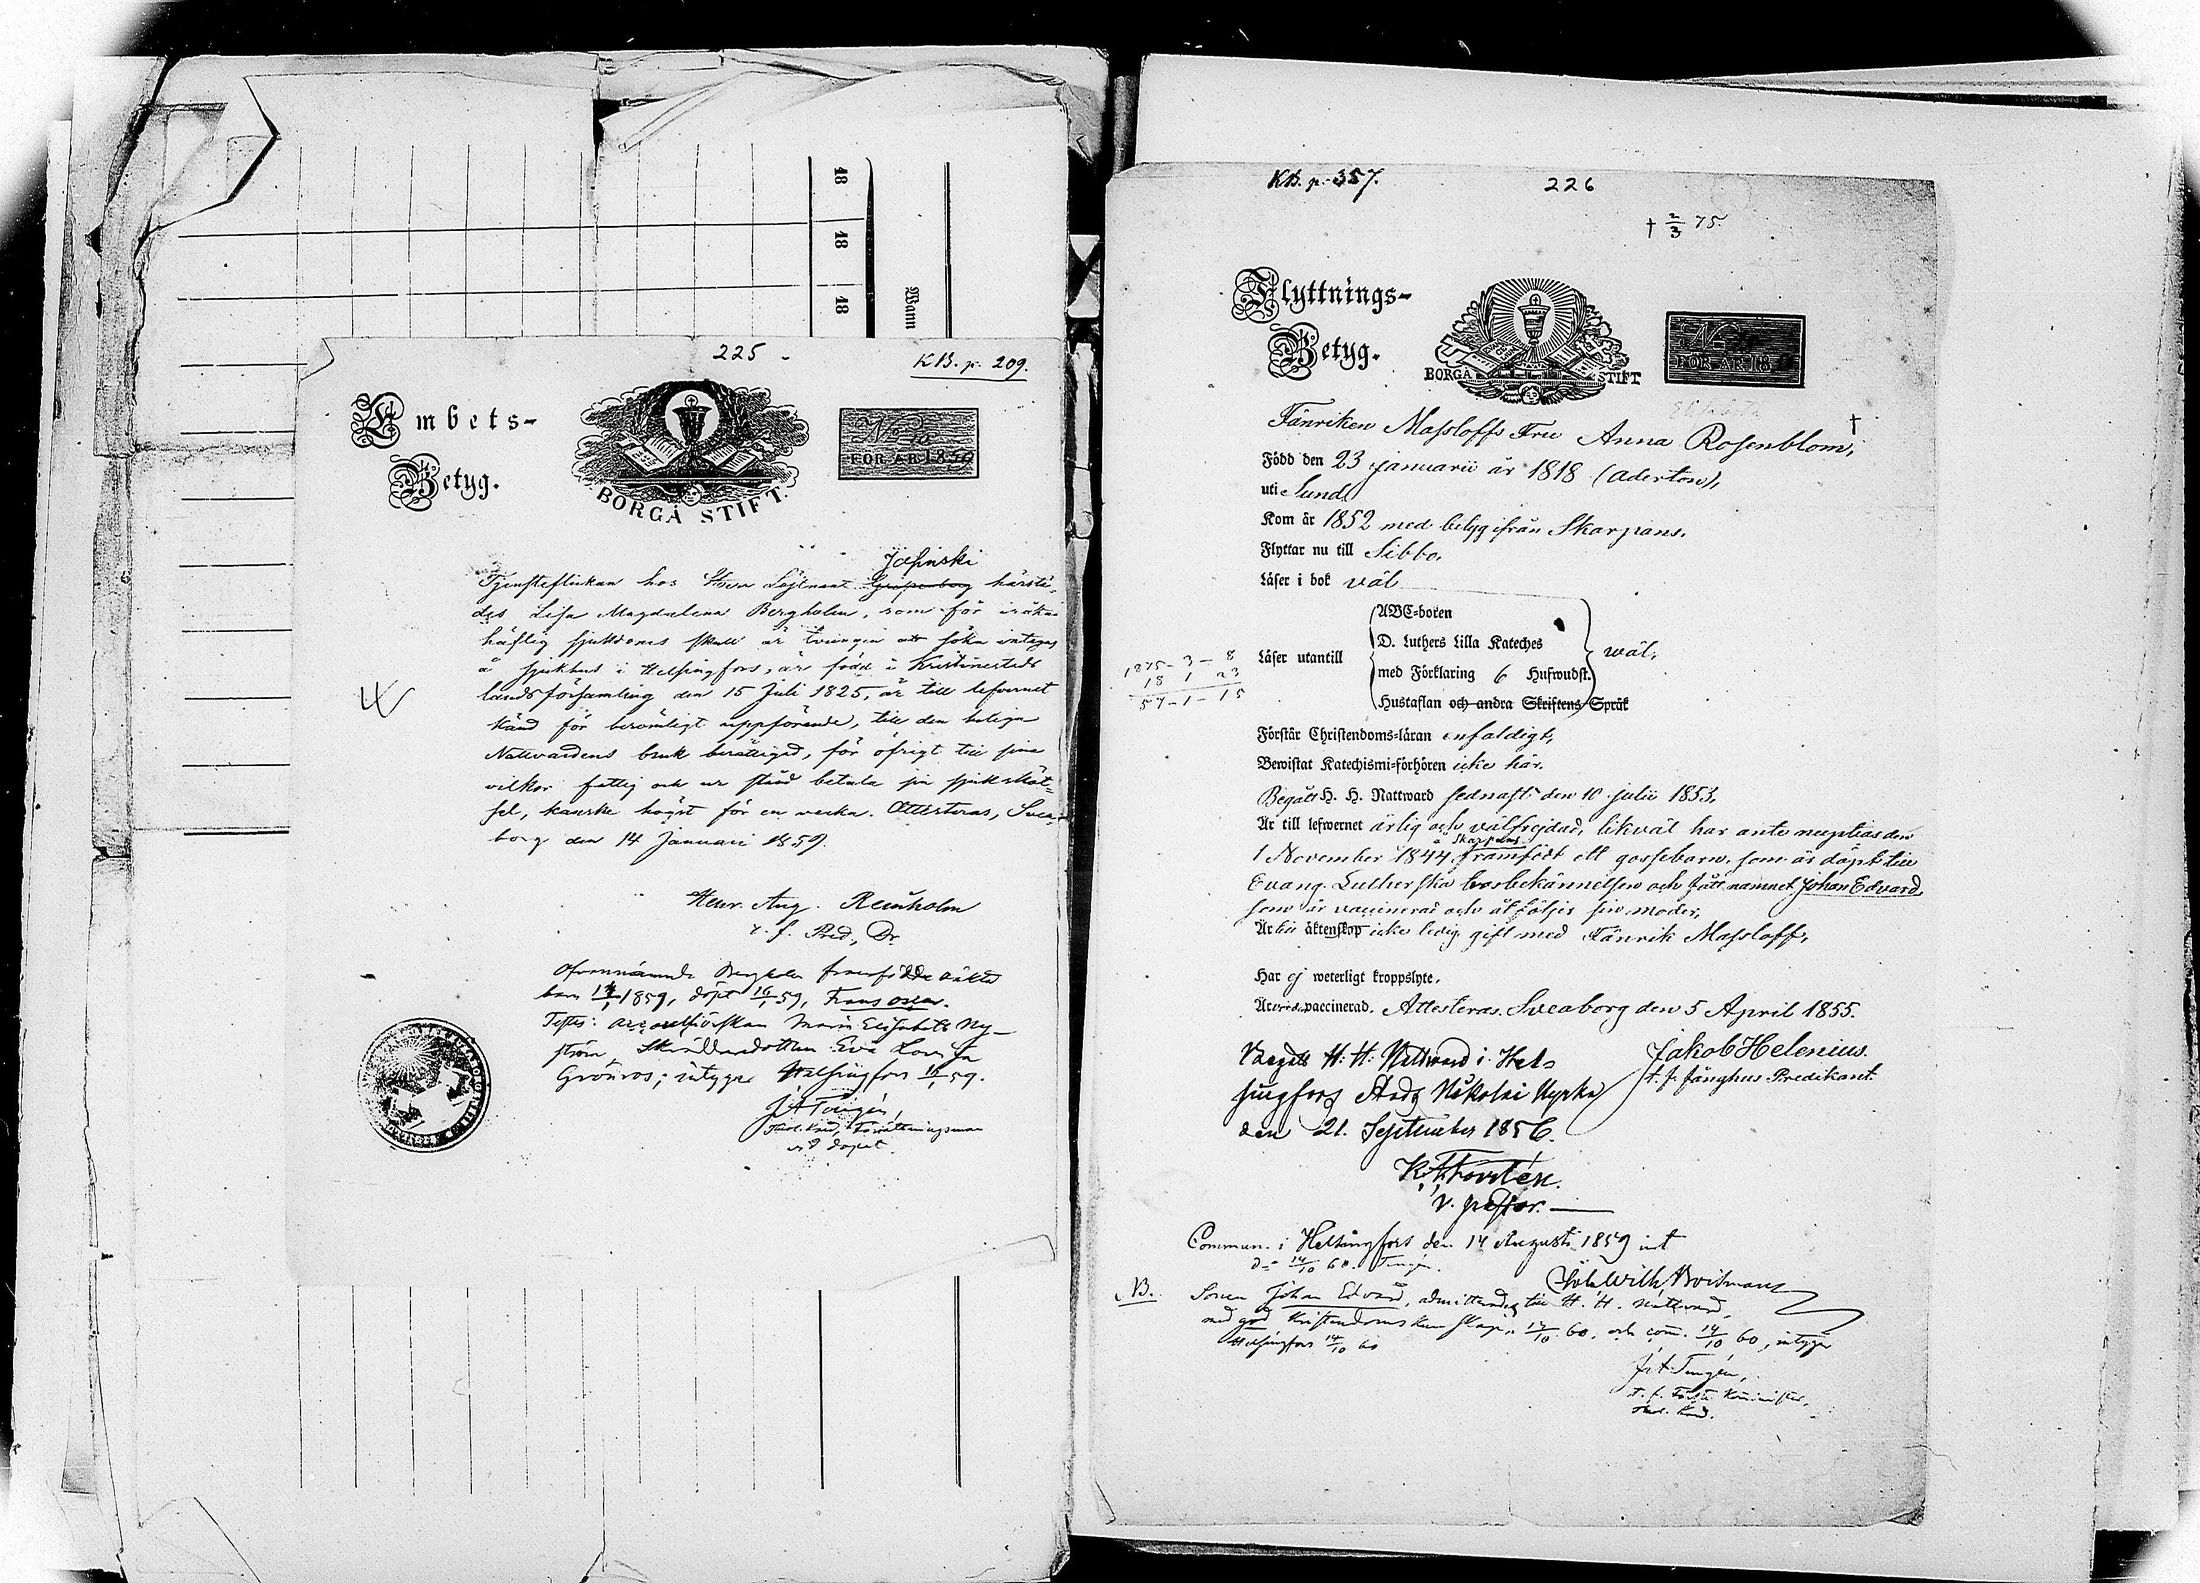 18
18
18
Mann
225
KB. p. 209.
Embets-
Betyg.
BORGÅ STIFT.
FÖR ÅR 1850
Jasinski
Tjensteflickan hos Herr Löjtnant härstä-
des Lisa Magdalena Bergholm, som för
häftig sjukdoms skull är tvungen att söka inträge
å sjukhus i Helsingfors, är född i Kristinestads
landsförsamling den 15 Juli 1825, är till lefvernet
känd för beromligt uppförande, till den heliga
Nattvardens bruk berättigad, för öfrigt till sina
vilkor fattig och ur stånd betala sin sjuksköt-
sel, kanske högst för en vecka. Attesteras, Svea-
borg den 14 Januari 1859.
Henr. Aug. Reinholm
t. f. Pred., Dr
Ofvannämnda Bergholm framfödde oäkta
barn 14/1 1859, döpt 16/1 59, Frans Oscar.
Testes: Maria Elisabeth Ny-
ström, Eva Lovisa
Grönroos; intygar Helsingfors 16/1 59.
J A Tengén,
KB. p. 357.
226
† 2/3 75.
Flyttnings-
Betyg.
BORGÅ STIFT
FÖR ÅR 18
Fänriken Massloffs Fru Anna Rosenblom, †
Född den 23 januarii år 1818 (aderton),
uti Sund
Kom år 1852 med betyg ifrån Skarpans.
Flyttar nu till Sibbo.
Läser i bok väl
ABC-boken
D. Luthers Lilla Kateches
Läser utantill
wäl.
med Förklaring 6 Hufwudst.
Hustaflan och andra Skriftens Språk
1875 - 3 - 8
18 1 23
57 - 1 - 15
Förstår Christendoms-läran enfaldigt,
Bewistat Katechismi-förhören icke här.
Begått H. H. Nattward sednast den 10 julii 1853.
Är till lefwernet ärlig och välfrejdad, likväl har ante nuptias den
å Skarpans
1 November 1844 framfödt ett gossebarn, som är döpt till
Evang. Lutherska trosbekännelsen och fått namnet Johan Edvard,
som är vaccinerad och åtföljer sin moder,
Är till äktenskap icke ledig gift med Fänrik Massloff,
Har ej weterligt kroppslyte.
Är vaccinerad. Attesteras. Sveaborg den 5 April 1855.
Jakob Helenius.
t. f. fånghus Predikant.
Begått H. H. Nattward i Hel-
singfors Stads Nikolai Kyrka
den 21. September 1856.
K. A. Hovilén.
v. pastor.
Commun. i Helsingfors den 14 Augusti 1859 int
do 14/10 60. Tengén.
NB. Sonen Johan Edvard, admitterades till H. H. nattvard,
med god kristendoms kunskap, 14/10 60, och com. 14/10 60, intygar
Helsingfors 14/10 60
J. A. Tengén,